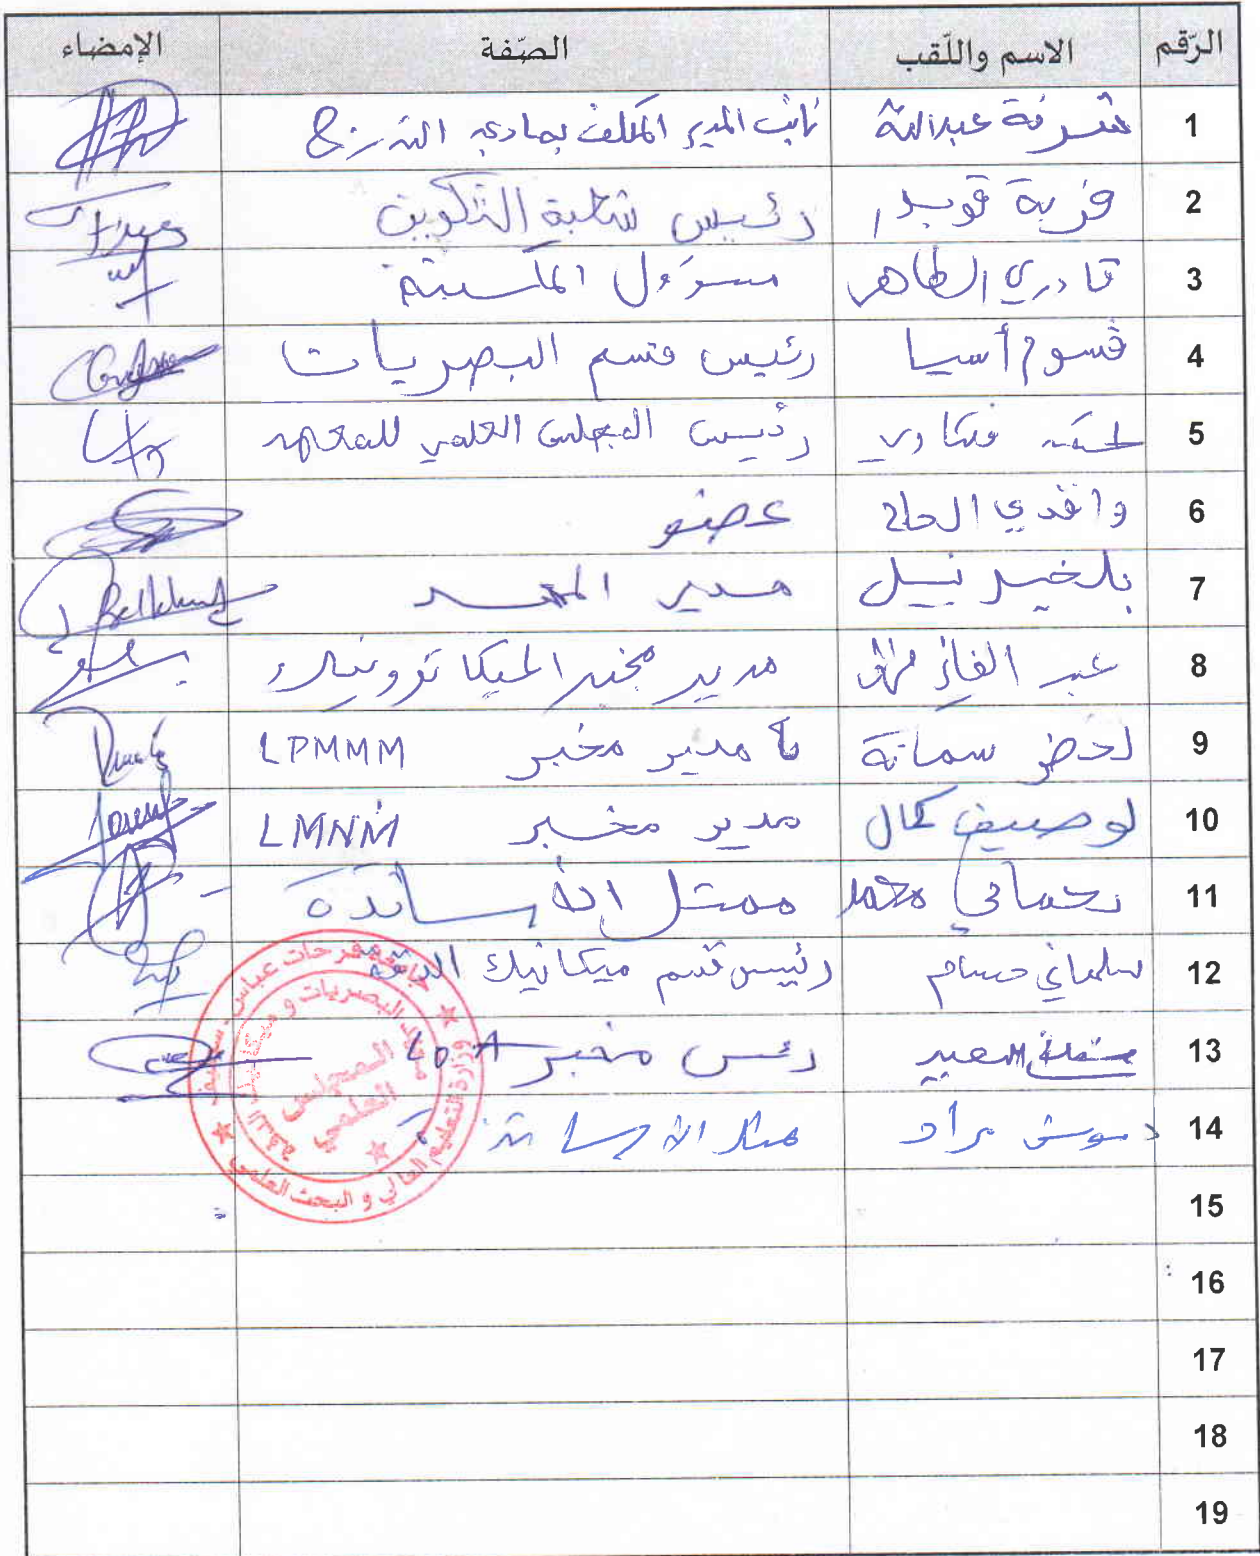 الرّقم الاسم واللّقب الصّفة الإمضاء
1 عبد الله نائب المدير المكلف
2 قرية قويدر رئيس التكوين
3 قادري الطاهر مسؤول المكتبة
4 قسوم أسيا رئيس قسم البصريات
5 رئيس المجلس العلمي للمعهد
6 وافدي الحاج عضو
7 بلخير نبيل مدير المعهد Belkhir
8 عبد مدير مخبر الميكاترونيك
9 لخضر سمانة مدير مخبر LPMMM
10 لوصيف كمال مدير مخبر LMNM
11 رحماني محمد ممثل الأساتذة
12 سلماني حسام رئيس قسم ميكانيك الدقة
13 رئيس مخبر LOA
14 مراد ممثل الأساتذة
15
16
17
18
19
جامعة فرحات عباس سطيف
وزارة التعليم العالي و البحث العلمي
معهد البصريات و ميكانيك الدقة
المجلس
العلمي